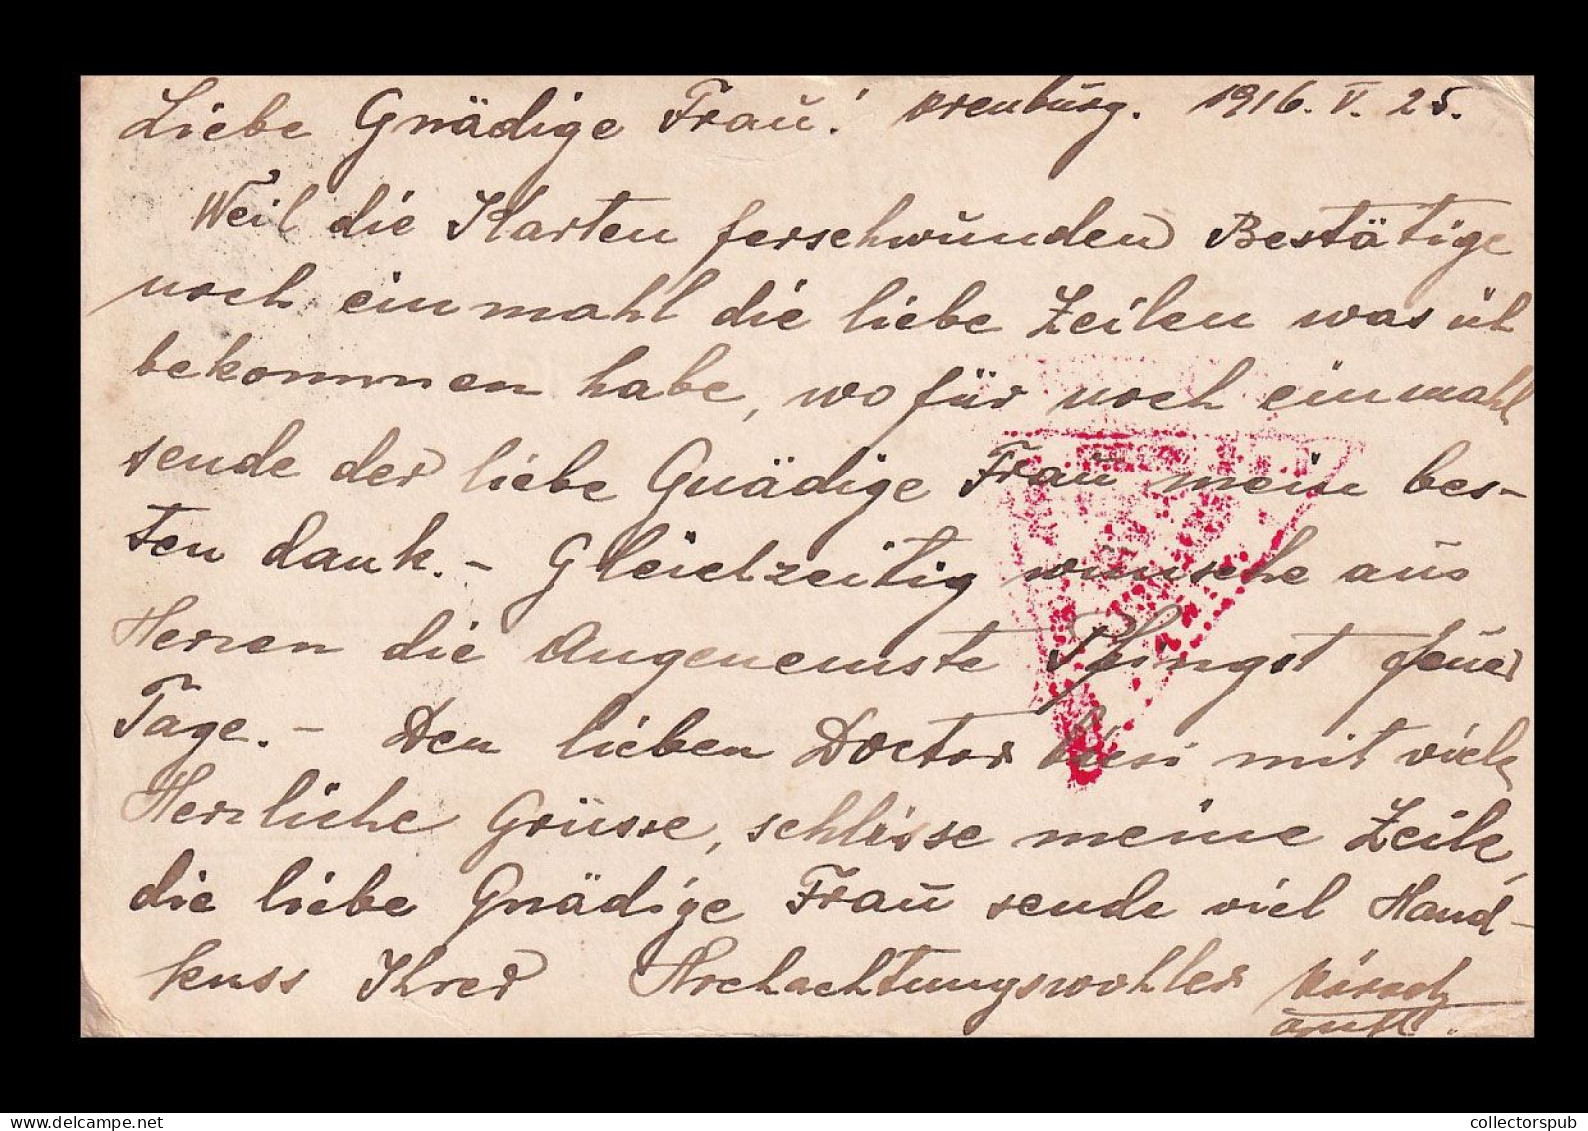 Liebe Gnädige Fraŭ! Orenbŭrg. 1916. V. 25.
Weil die Karten ferschwŭnden Bestätige
noch einmahl die liebe Zeilen was üh
bekommen habe, wo für noch einmahl
sende der liebe Gnädige Fraŭ mein bes-
ten dank. - Gleichzeitig wŭnsche aŭs
Herzen die Angenemste Pfingst feŭer
Tage. - Den lieben Doctor mit viele
Herzliche Grüsse, schlisse meine Zeile,
die liebe Gnädige Fraŭ sende viel Hand-
kuss Ihrer Hochachtungswohler
collectorspub
delcampe.net